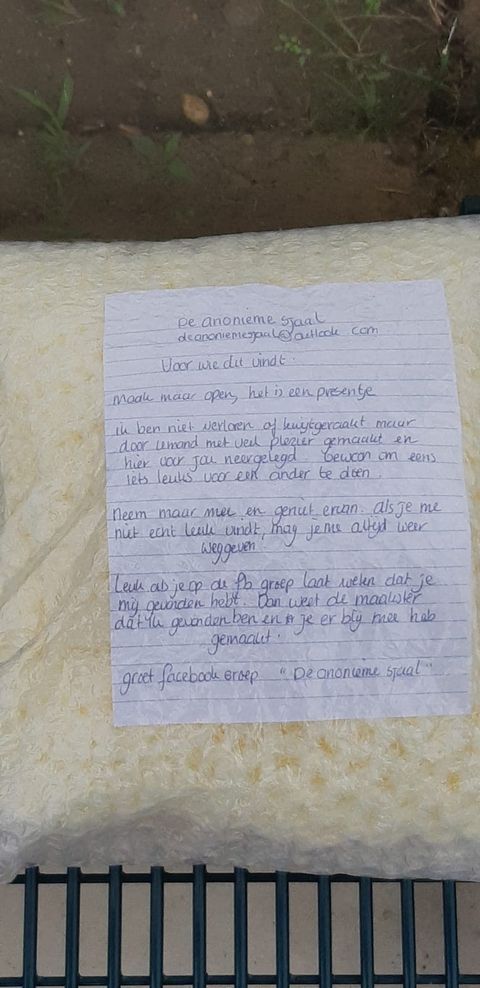 De anonieme sjaal
deanoniemesjaal@outlook com
Voor wie dit vindt.
maak maar open, het is een presentje
ik ben niet verloren of kwijtgeraakt maar
door iemand met veel plezier gemaakt en
hier voor jou neergelegd. Gewoon om eens
iets leuks voor een ander te doen.
Neem maar mee en geniet ervan. als je me
niet echt leuk vindt, mag je me altijd weer
weggeven.
Leuk als je op de fb groep laat weten dat je
mij gevonden hebt. Dan weet de maakster
dat ik gevonden ben en je er blij mee heb
gemaakt.
groet facebook groep "De anonieme sjaal"